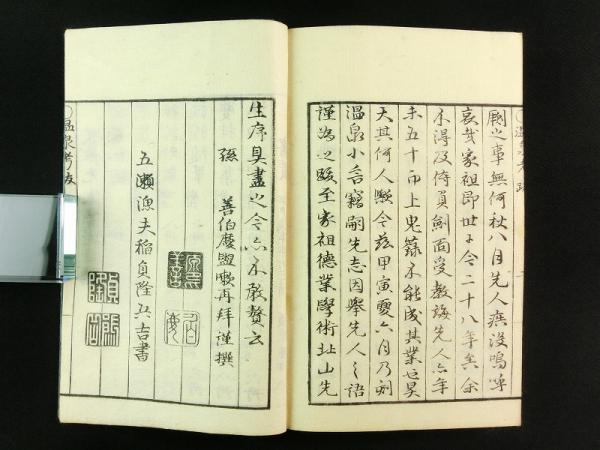 厥之事無何秋八月先人病沒嗚呼
哀哉家祖即世于今二十八年矣余
不得及侍員劍面受教誨先人亦年
未五十而上鬼籙不能成其業也昊
天其何人歟今茲甲寅夏六月乃刻
溫泉小言竊嗣先志因舉先人之語
謹為之跋至家祖德業學術址山先
生序具盡之今亦不敢贅云
孫 善伯慶盥嗽再拜謹撰
五瀨漁夫稻貞隆其吉書
溫泉考跋